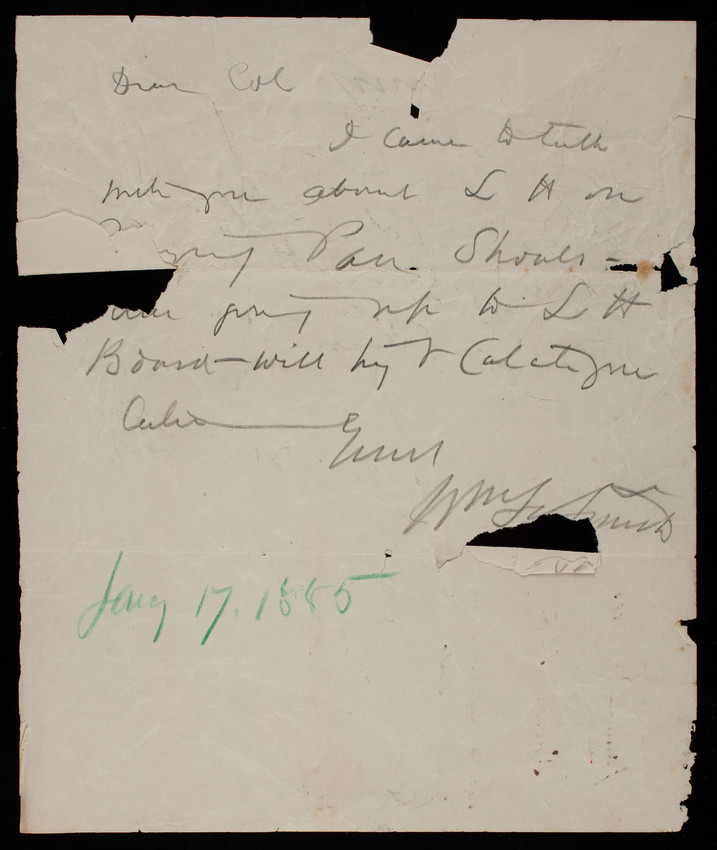 Dear Col
I came to talk
with you about L H on
Pan Shoals -
am going up to L H
Board - will try & Cal at your
Yours
Wm Smith
Jany 17. 1885